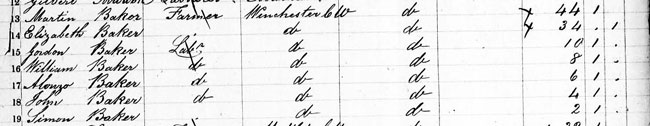 13 Martin Baker Farmer Winchester C W do 44 1
14 Elizabeth Baker do do 34 1
15 Baker Labr do do 10 1
16 William Baker do do do 8 1
17 Alonzo Baker do do do 6 1
18 John Baker do do do 4 1
19 Simon Baker do do 2 1